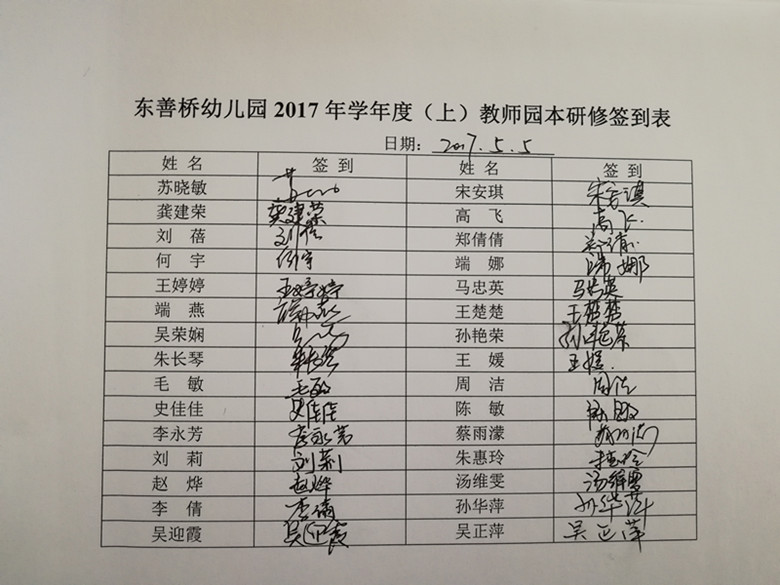 东善桥幼儿园 2017 年学年度（上）教师园本研修签到表
日期： 2017.5.5
姓 名 签 到 姓 名 签 到
苏晓敏 宋安琪 宋安琪
龚建荣 龚建荣 高 飞 高飞
刘 蓓 刘蓓 郑倩倩
何 宇 何宇 端 娜 端娜
王婷婷 王婷婷 马忠英 马忠英
端 燕 端燕 王楚楚 王楚楚
吴荣娴 孙艳荣 孙艳荣
朱长琴 朱长琴 王 媛 王媛
毛 敏 毛敏 周 洁 周洁
史佳佳 史佳佳 陈 敏 陈敏
李永芳 李永芳 蔡雨濛
刘 莉 刘莉 朱惠玲
赵 烨 赵烨 汤维雯 汤维雯
李 倩 李倩 孙华萍 孙华萍
吴迎霞 吴迎霞 吴正萍 吴正萍